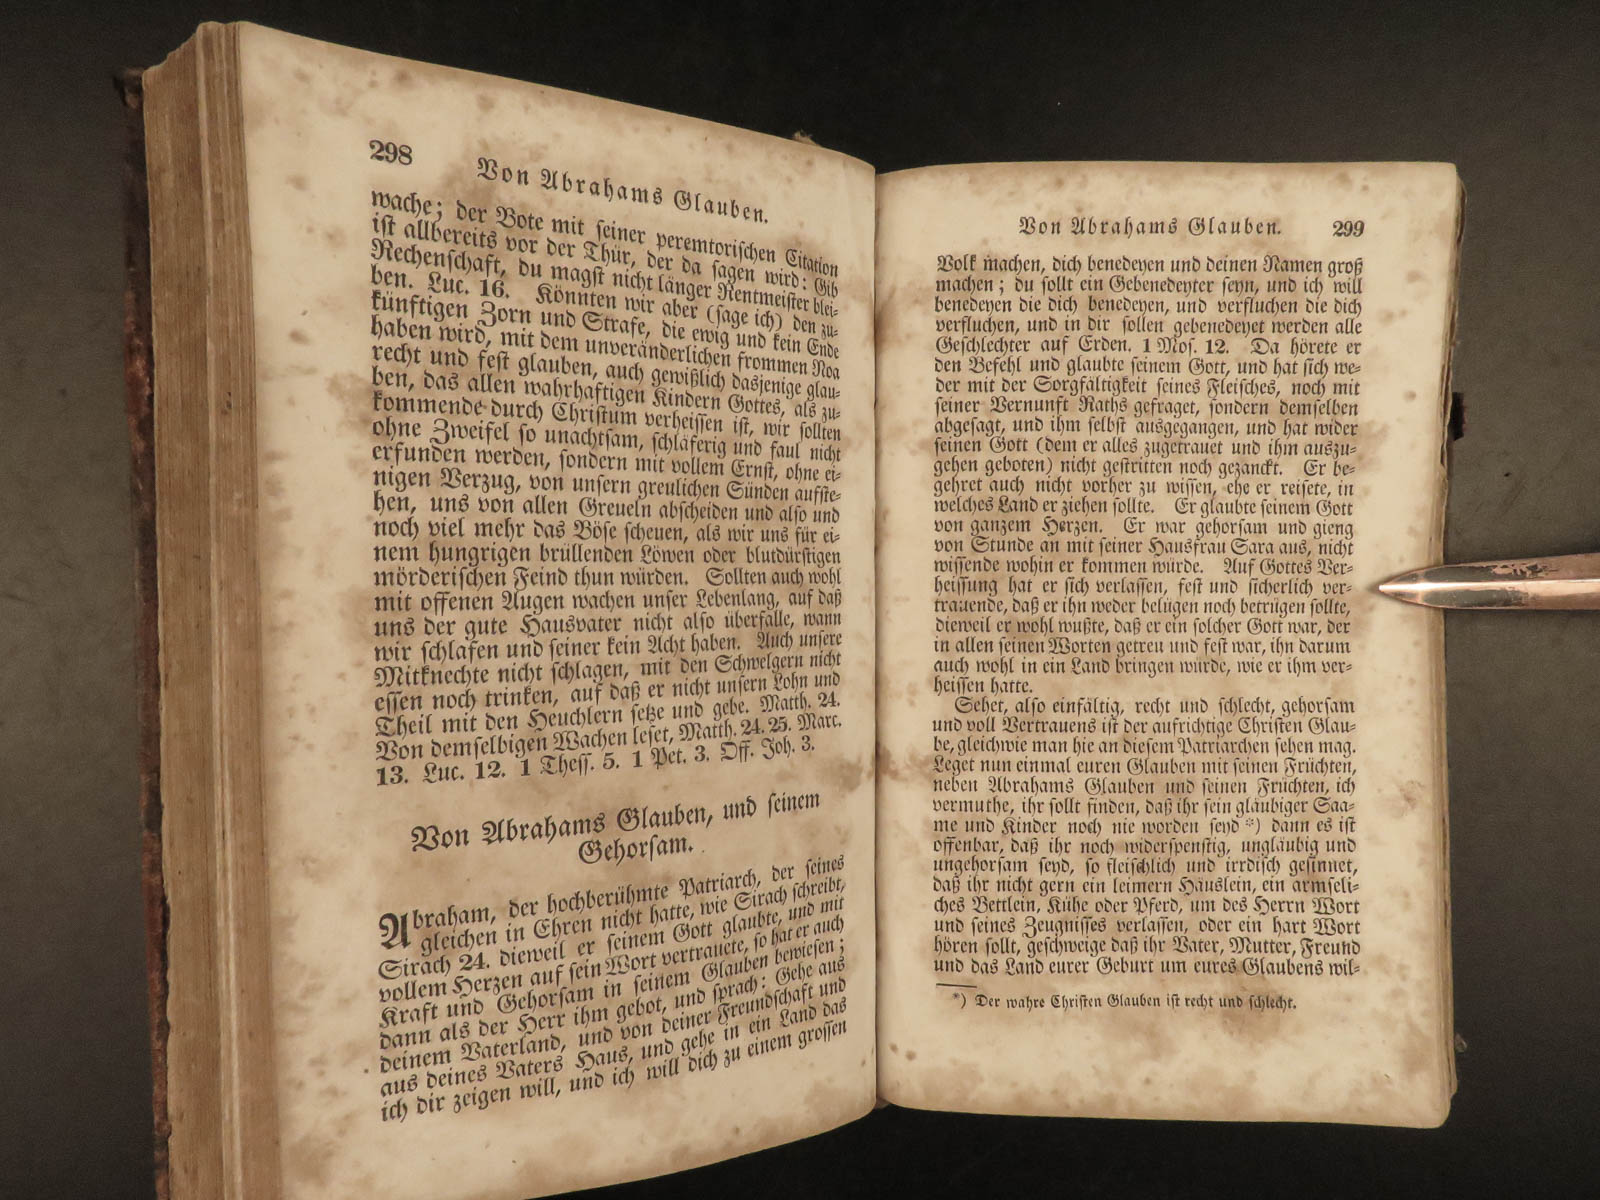 298
Von Abrahams Glauben.
wache; der Bote mit seiner peremtorischen Citation
ist allbereits vor der Thür, der da sagen wird: Gib
Rechenschaft, du magst nicht länger Rentmeister blei-
ben. Luc. 16. Könnten wir aber (sage ich) den zu-
künftigen Zorn und Strafe, die ewig und kein Ende
haben wird, mit dem unveränderlichen frommen Noa
recht und fest glauben, auch gewißlich dasjenige glau-
ben, das allen wahrhaftigen Kindern Gottes, als zu-
kommende durch Christum verheissen ist, wir sollten
ohne Zweifel so unachtsam, schläferig und faul nicht
erfunden werden, sondern mit vollem Ernst, ohne ei-
nigen Verzug, von unsern greulichen Sünden aufste-
hen, uns von allen Greueln abscheiden und also und
noch viel mehr das Böse scheuen, als wir uns für ei-
nem hungrigen brüllenden Löwen oder blutdürstigen
mörderischen Feind thun würden. Sollten auch wohl
mit offenen Augen wachen unser Lebenlang, auf daß
uns der gute Hausvater nicht also überfalle, wann
wir schlafen und seiner kein Acht haben. Auch unsere
Mitknechte nicht schlagen, mit den Schwelgern nicht
essen noch trinken, auf daß er nicht unsern Lohn und
Theil mit den Heuchlern setze und gebe. Matth. 24.
Von demselbigen Wachen leset, Matth. 24. 25. Marc.
13. Luc. 12. 1 Thess. 5. 1 Pet. 3. Off. Joh. 3.
Von Abrahams Glauben, und seinem
Gehorsam.
Abraham, der hochberühmte Patriarch, der seines
gleichen in Ehren nicht hatte, wie Sirach schreibt,
Sirach 24. dieweil er seinem Gott glaubte, und mit
vollem Herzen auf sein Wort vertrauete, so hat er auch
Kraft und Gehorsam in seinem Glauben bewiesen;
dann als der Herr ihm gebot, und sprach: Gehe aus
deinem Vaterland, und von deiner Freundschaft und
aus deines Vaters Haus, und gehe in ein Land das
ich dir zeigen will, und ich will dich zu einem grossen
Von Abrahams Glauben.
299
Volk machen, dich benedeyen und deinen Namen groß
machen; du sollt ein Gebenedeyter seyn, und ich will
benedeyen die dich benedeyen, und verfluchen die dich
verfluchen, und in dir sollen gebenedeyet werden alle
Geschlechter auf Erden. 1 Mos. 12. Da hörete er
den Befehl und glaubte seinem Gott, und hat sich we-
der mit der Sorgfältigkeit seines Fleisches, noch mit
seiner Vernunft Raths gefraget, sondern demselben
abgesagt, und ihm selbst ausgegangen, und hat wider
seinen Gott (dem er alles zugetrauet und ihm auszu-
gehen geboten) nicht gestritten noch gezanckt. Er be-
gehret auch nicht vorher zu wissen, ehe er reisete, in
welches Land er ziehen sollte. Er glaubte seinem Gott
von ganzem Herzen. Er war gehorsam und gieng
von Stunde an mit seiner Hausfrau Sara aus, nicht
wissende wohin er kommen würde. Auf Gottes Ver-
heissung hat er sich verlassen, fest und sicherlich ver-
trauende, daß er ihn weder belügen noch betrügen sollte,
dieweil er wohl wußte, daß er ein solcher Gott war, der
in allen seinen Worten getreu und fest war, ihn darum
auch wohl in ein Land bringen würde, wie er ihm ver-
heissen hatte.
Sehet, also einfältig, recht und schlecht, gehorsam
und voll Vertrauens ist der aufrichtige Christen Glau-
be, gleichwie man hie an diesem Patriarchen sehen mag.
Leget nun einmal euren Glauben mit seinen Früchten,
neben Abrahams Glauben und seinen Früchten, ich
vermuthe, ihr sollt finden, daß ihr sein gläubiger Saa-
me und Kinder noch nie worden seyd *) dann es ist
offenbar, daß ihr noch widerspenstig, ungläubig und
ungehorsam seyd, so fleischlich und irrdisch gesinnet,
daß ihr nicht gern ein leimern Häuslein, ein armseli-
ches Bettlein, Kühe oder Pferd, um des Herrn Wort
und seines Zeugnisses verlassen, oder ein hart Wort
hören sollt, geschweige daß ihr Vater, Mutter, Freund
und das Land eurer Geburt um eures Glaubens wil-
*) Der wahre Christen Glauben ist recht und schlecht.